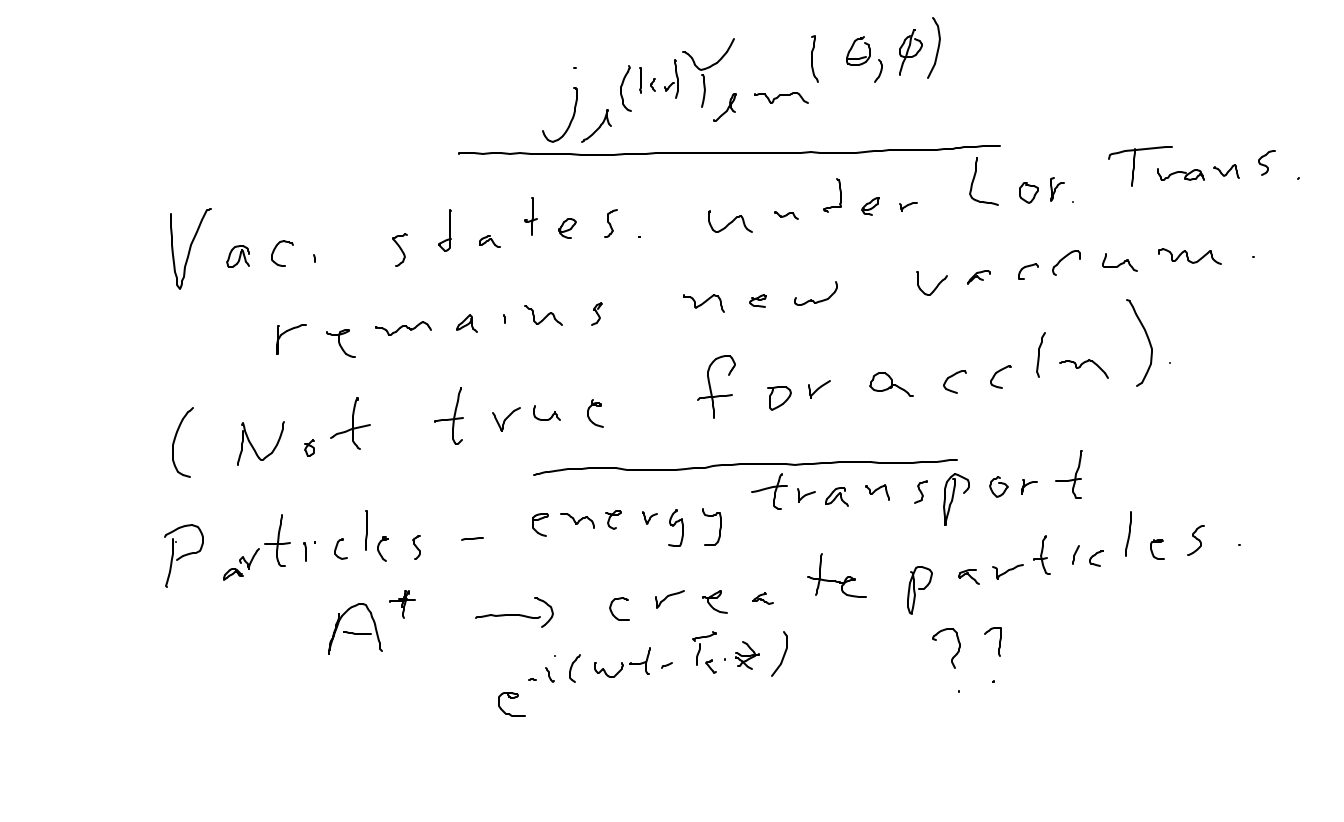 j_l(kr) Y_{lm}(θ, φ)
Vac. states. under Lor. Trans.
remains new vaccum.
(Not true for accln).
Particles - energy transport
A⁺ → create particles.
e^{-i(ωt - k⃗·x⃗)} ??